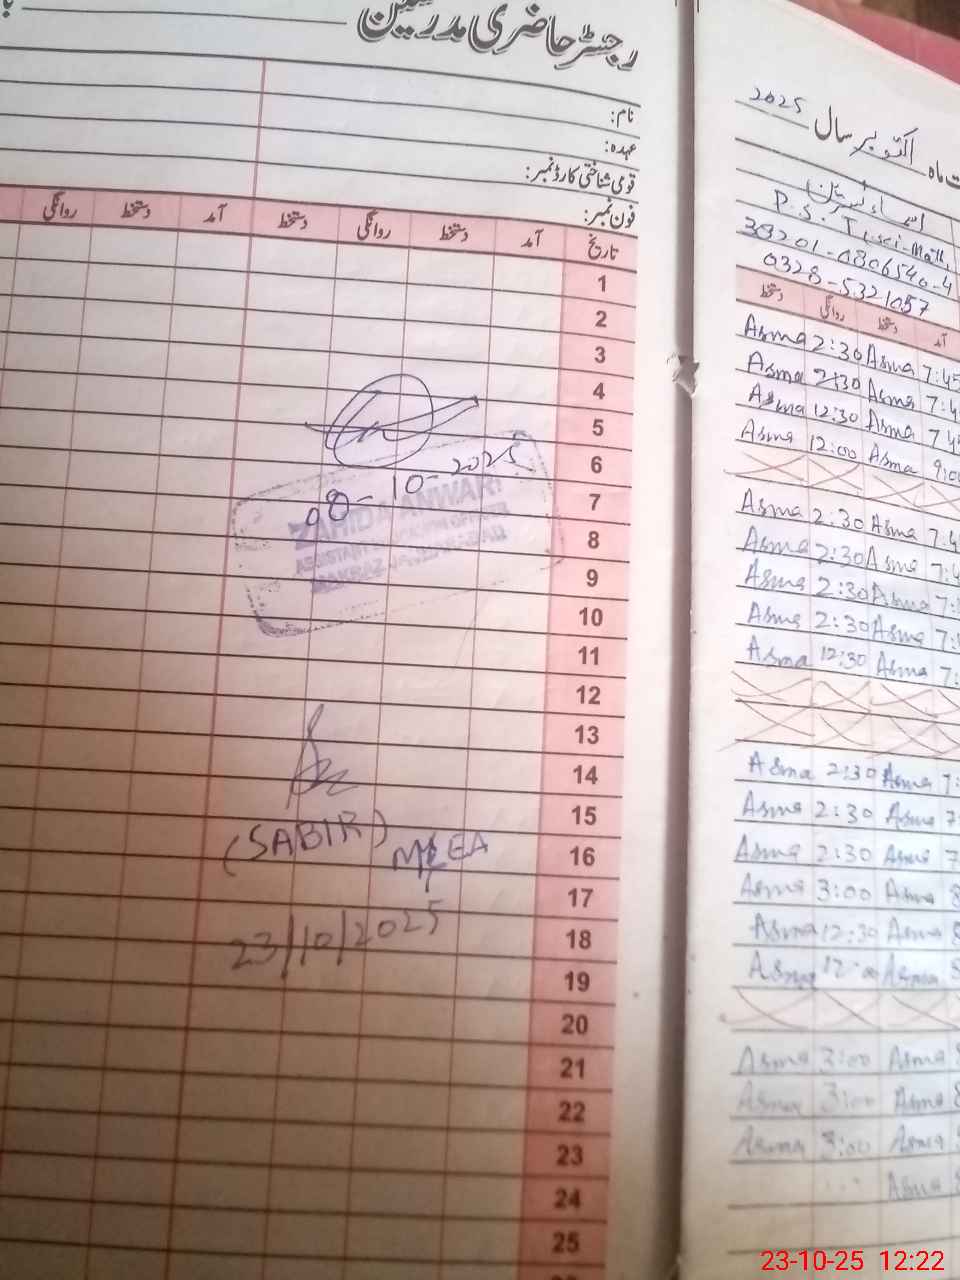 رجسٹر حاضری مدرسین
نام:
عہدہ:
قومی شناختی کارڈ نمبر:
فون نمبر:
تاریخ آمد دستخط روانگی دستخط آمد دستخط روانگی
1
2
3
4
5
6
7
8
9
10
11
12
13
14
15
16
17
18
19
20
21
22
23
24
25
08-10-2025
ZAHID ANWAR
ASSISTANT EDUCATION OFFICER
MARKAZ
(SABIR) MEA
23/10/2025
ماہ اکتوبر سال 2025
P.S.T, sci-Math
38201-0806540-4
0328-5321057
آمد دستخط روانگی دستخط
Asma 2:30 Asma 7:45
Asma 2:30 Asma 7:4
Asma 12:30 Asma 7:4
Asma 12:00 Asma 9:00
Asma 2:30 Asma 7:4
Asma 2:30 Asma 7:4
Asma 2:30 Asma 7:
Asma 2:30 Asma 7:
Asma 12:30 Asma 7:
Asma 2:30 Asma 7:
Asma 2:30 Asma 7
Asma 2:30 Asma 7
Asma 3:00 Asma 8
Asma 12:30 Asma 8
Asma 12:00 Asma 8
Asma 3:00 Asma 8
Asma 3:00 Asma 8
Asma 3:00 Asma
Asma 8
23-10-25 12:22